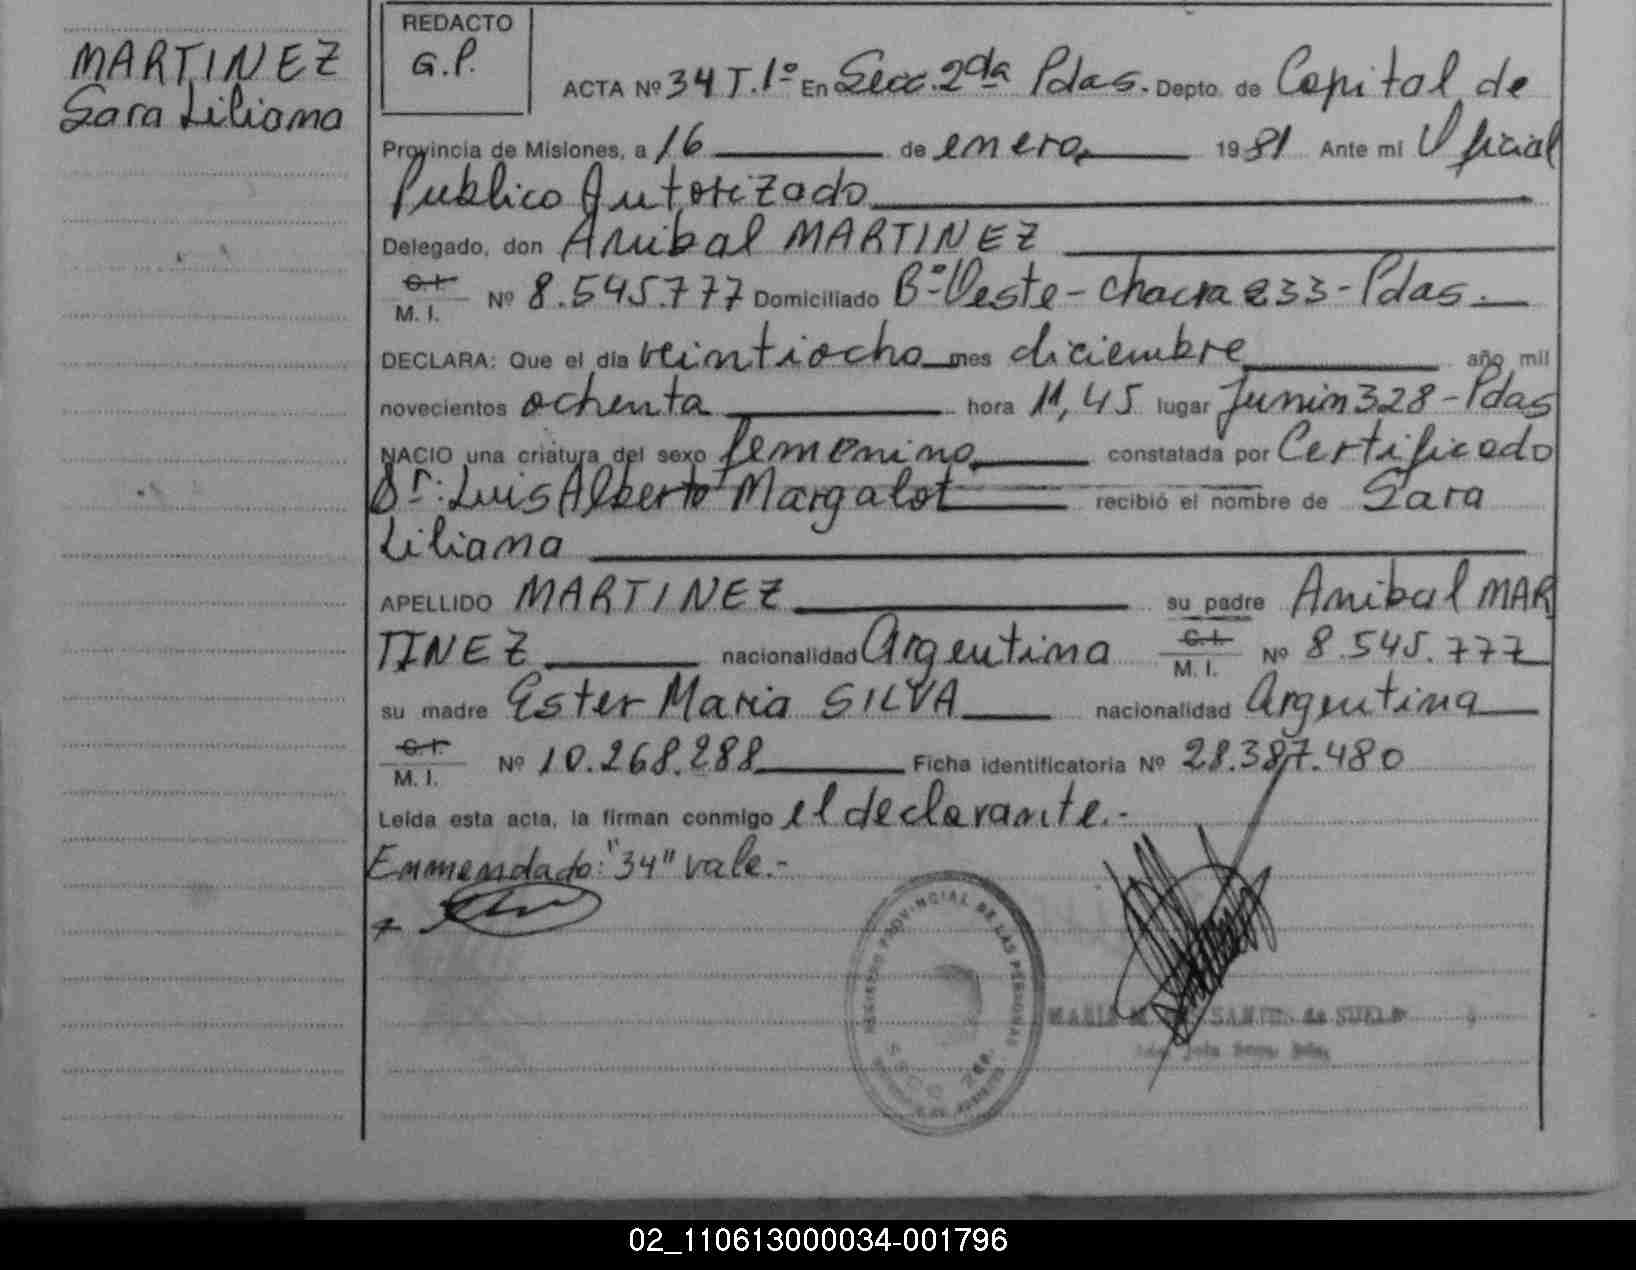 MARTINEZ
Sara Liliana
REDACTO
G.P.
ACTA Nº 34 T.1º En Secc. 2da Pdas. Depto. de Capital de
Provincia de Misiones, a 16 de enero 1981 Ante mi Oficial
Publico Autorizado
Delegado, don Anibal MARTINEZ
C.I.
M. I. Nº 8.545.777 Domiciliado Bº Oeste - chacra 233 - Pdas.
DECLARA: Que el día veintiocho mes diciembre año mil
novecientos ochenta hora 11,45 lugar Junin 328 - Pdas
NACIO una criatura del sexo femenino constatada por Certificado
Dr: Luis Alberto Margalot recibió el nombre de Sara
Liliana
APELLIDO MARTINEZ su padre Anibal MAR
TINEZ nacionalidad Argentina C.I. M. I. Nº 8.545.777
su madre Ester Maria SILVA nacionalidad Argentina
C.I.
M. I. Nº 10.268.288 Ficha identificatoria Nº 28.387.480
Leída esta acta, la firman conmigo el declarante.-
Enmendado: "34" vale.-
REGISTRO PROVINCIAL DE LAS PERSONAS
02_110613000034-001796